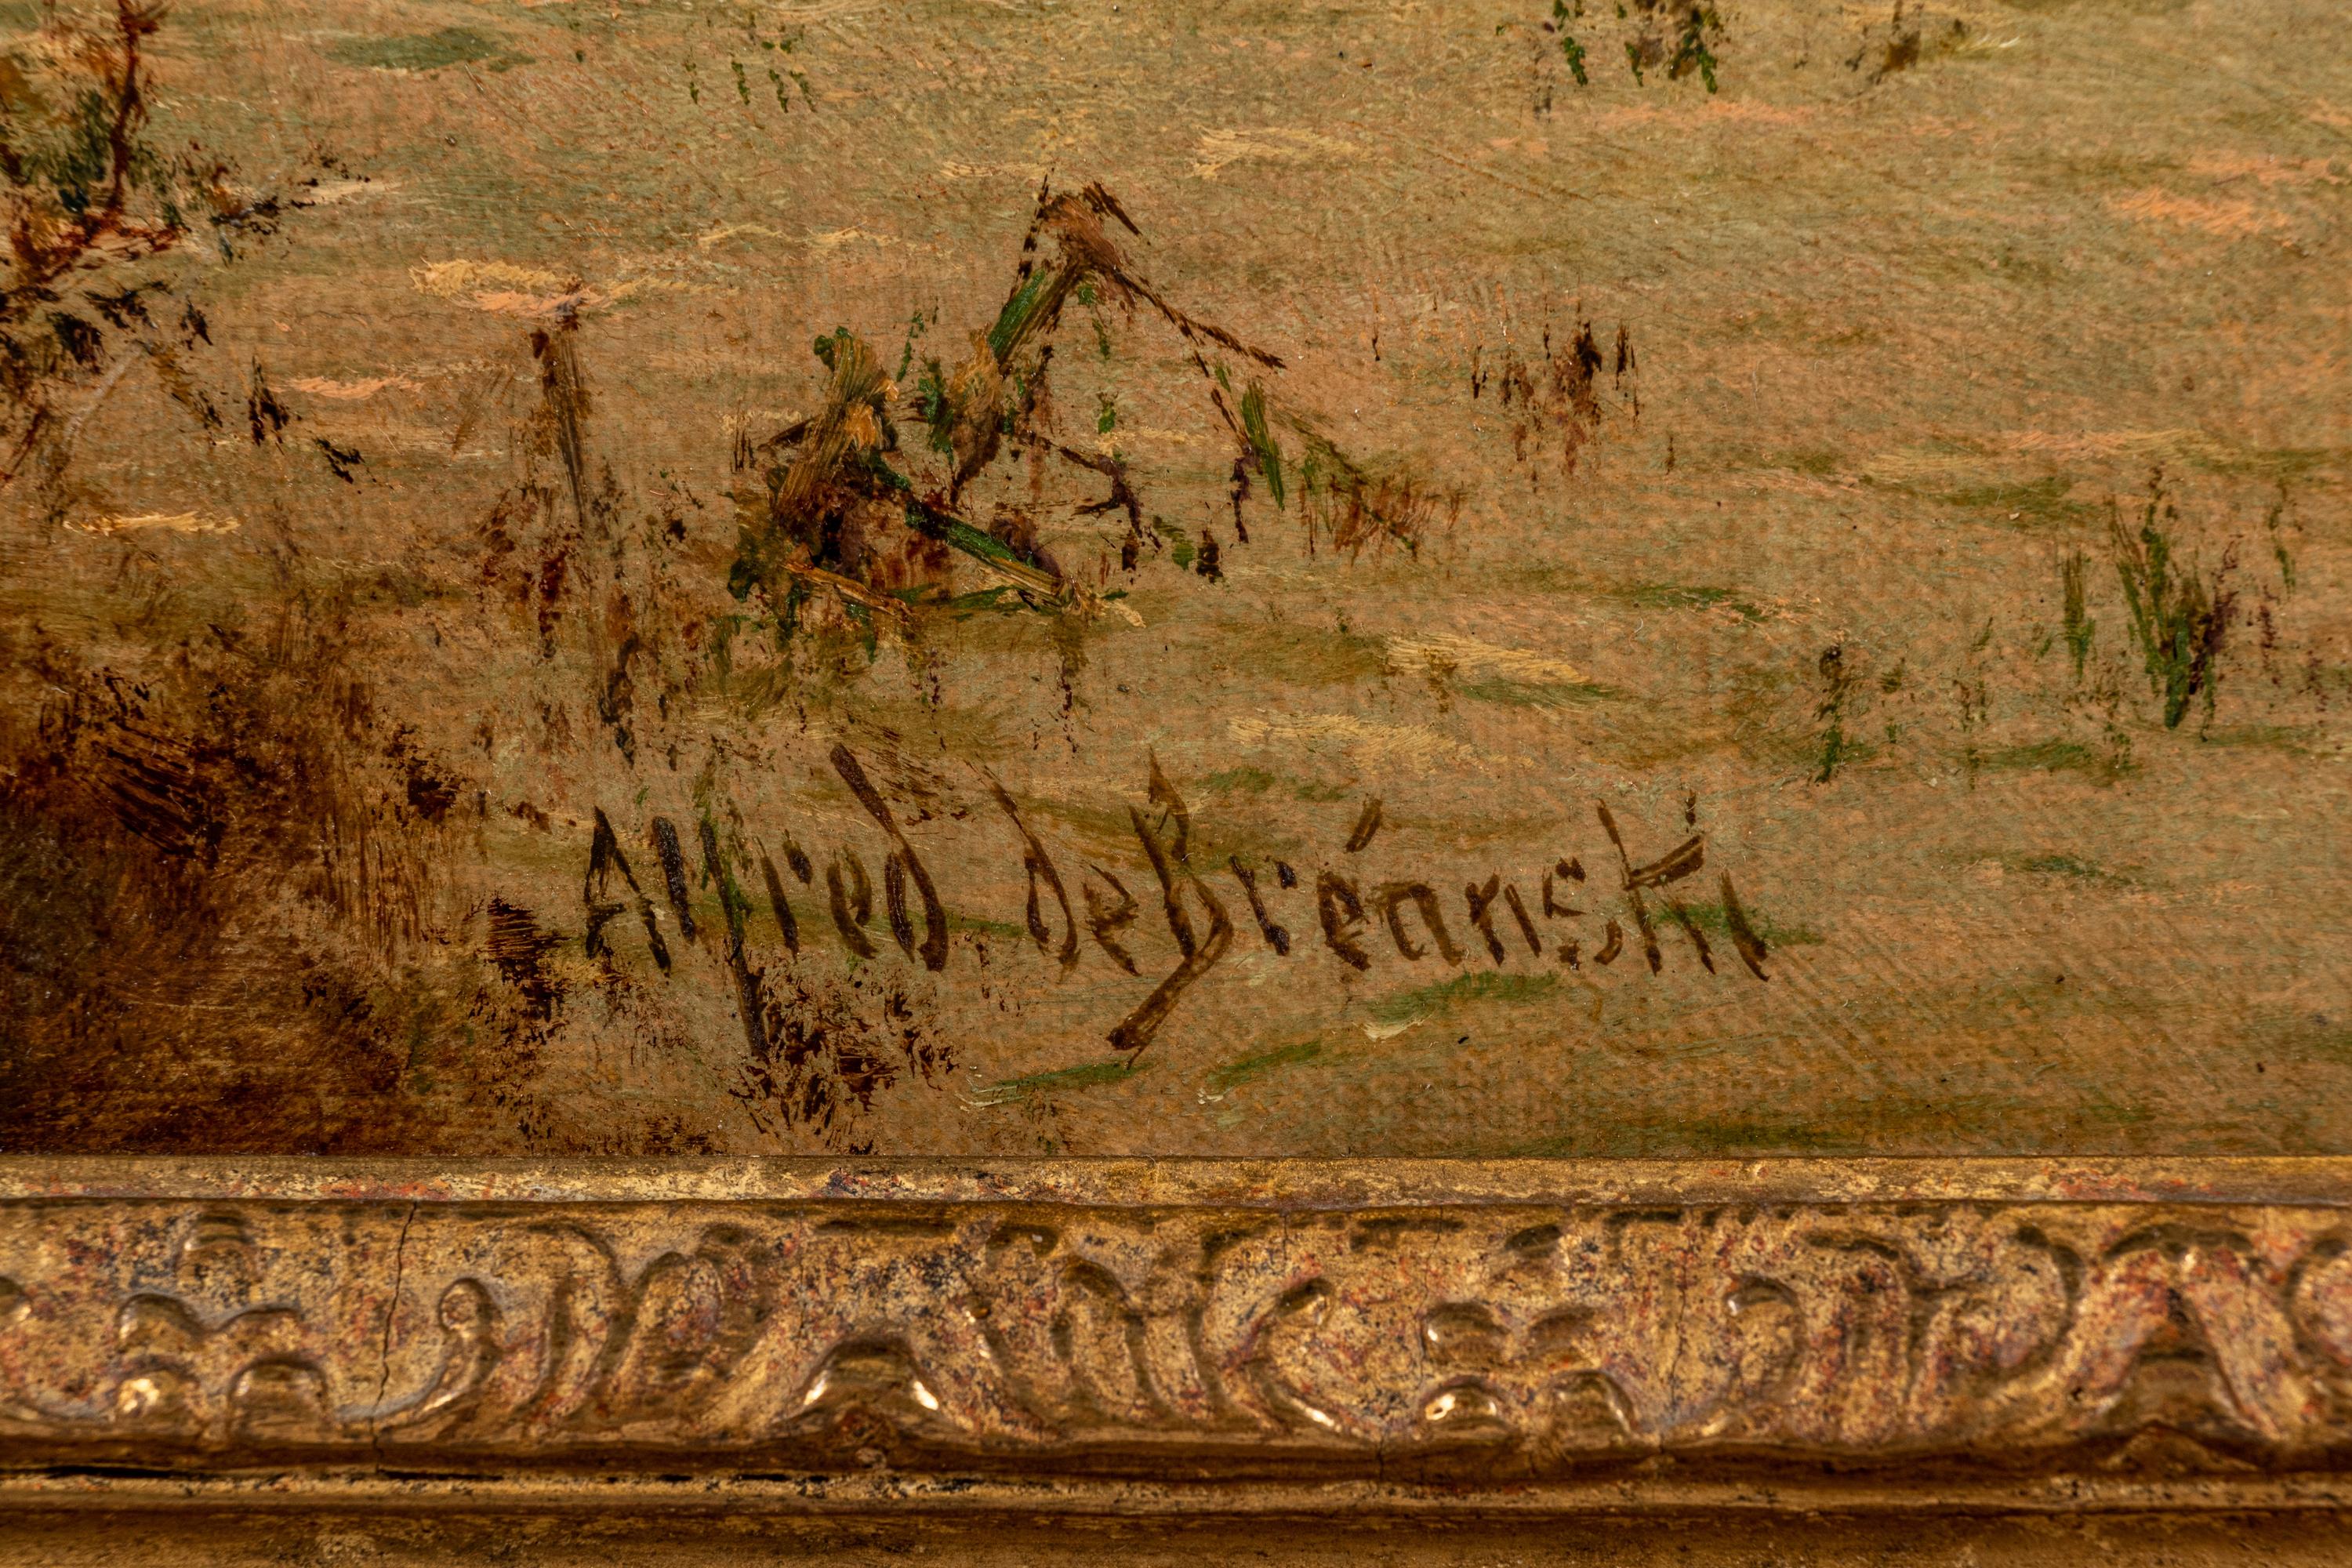 Alfred de Bréanski